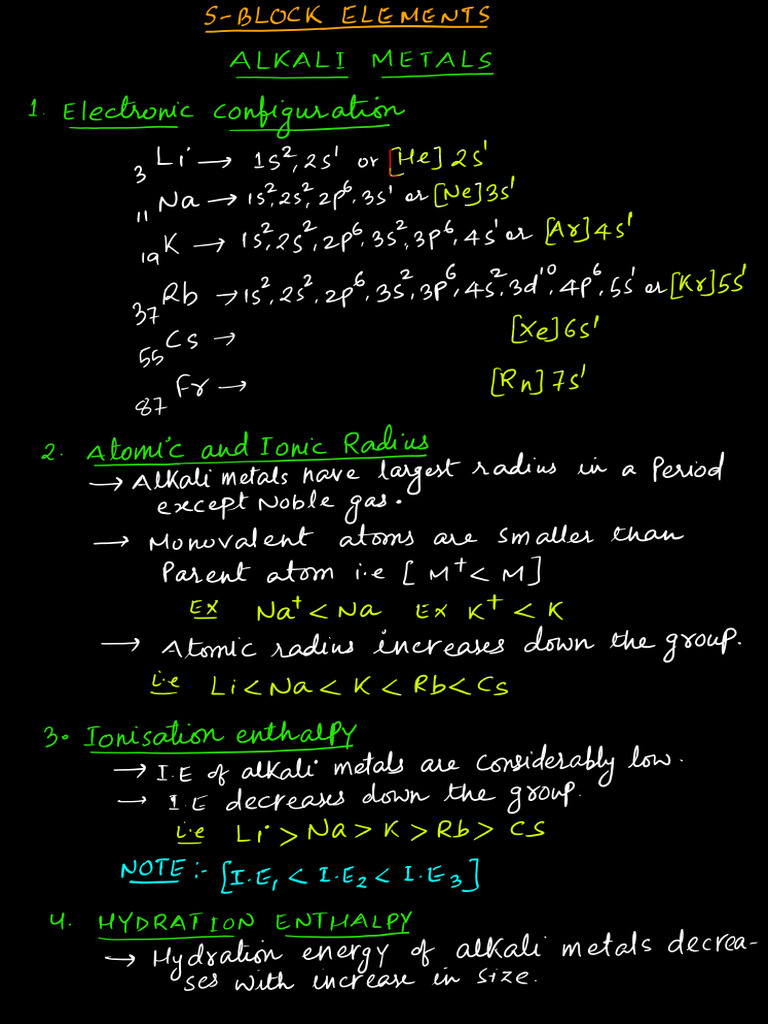 S-BLOCK ELEMENTS
ALKALI METALS
1. Electronic configuration
₃Li → 1s², 2s¹ or [He] 2s¹
₁₁Na → 1s², 2s², 2p⁶, 3s¹ or [Ne] 3s¹
₁₉K → 1s², 2s², 2p⁶, 3s², 3p⁶, 4s¹ or [Ar] 4s¹
₃₇Rb → 1s², 2s², 2p⁶, 3s², 3p⁶, 4s², 3d¹⁰, 4p⁶, 5s¹ or [Kr] 5s¹
₅₅Cs → [Xe] 6s¹
₈₇Fr → [Rn] 7s¹
2. Atomic and Ionic Radius
→ Alkali metals have largest radius in a Period
except Noble gas.
→ Monovalent atoms are smaller than
Parent atom i.e [M⁺ < M]
Ex Na⁺ < Na Ex K⁺ < K
→ Atomic radius increases down the group.
i.e Li < Na < K < Rb < Cs
3. Ionisation enthalpy
→ I.E of alkali metals are considerably low.
→ I.E decreases down the group.
i.e Li > Na > K > Rb > Cs
NOTE :- [I.E₁ < I.E₂ < I.E₃]
4. HYDRATION ENTHALPY
→ Hydration energy of alkali metals decrea-
ses with increase in size.